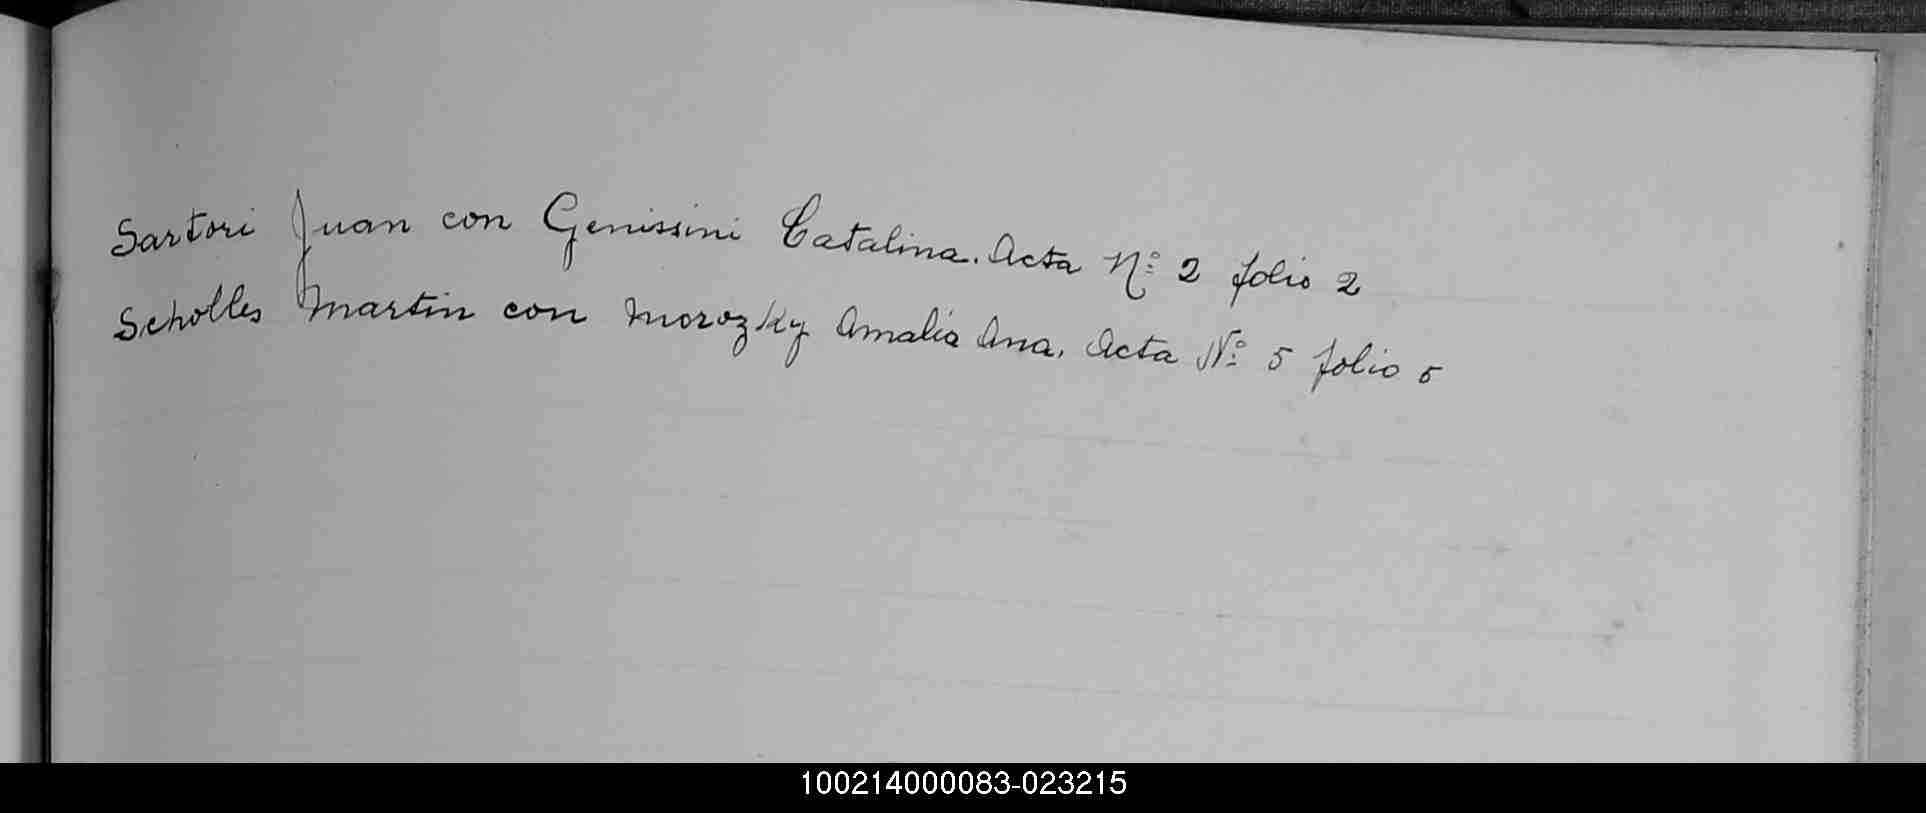 Sartori Juan con Genissini Catalina. Acta Nº 2 folio 2
Scholles Martin con Morozky Amalia Ana. Acta Nº 5 folio 5
100214000083-023215